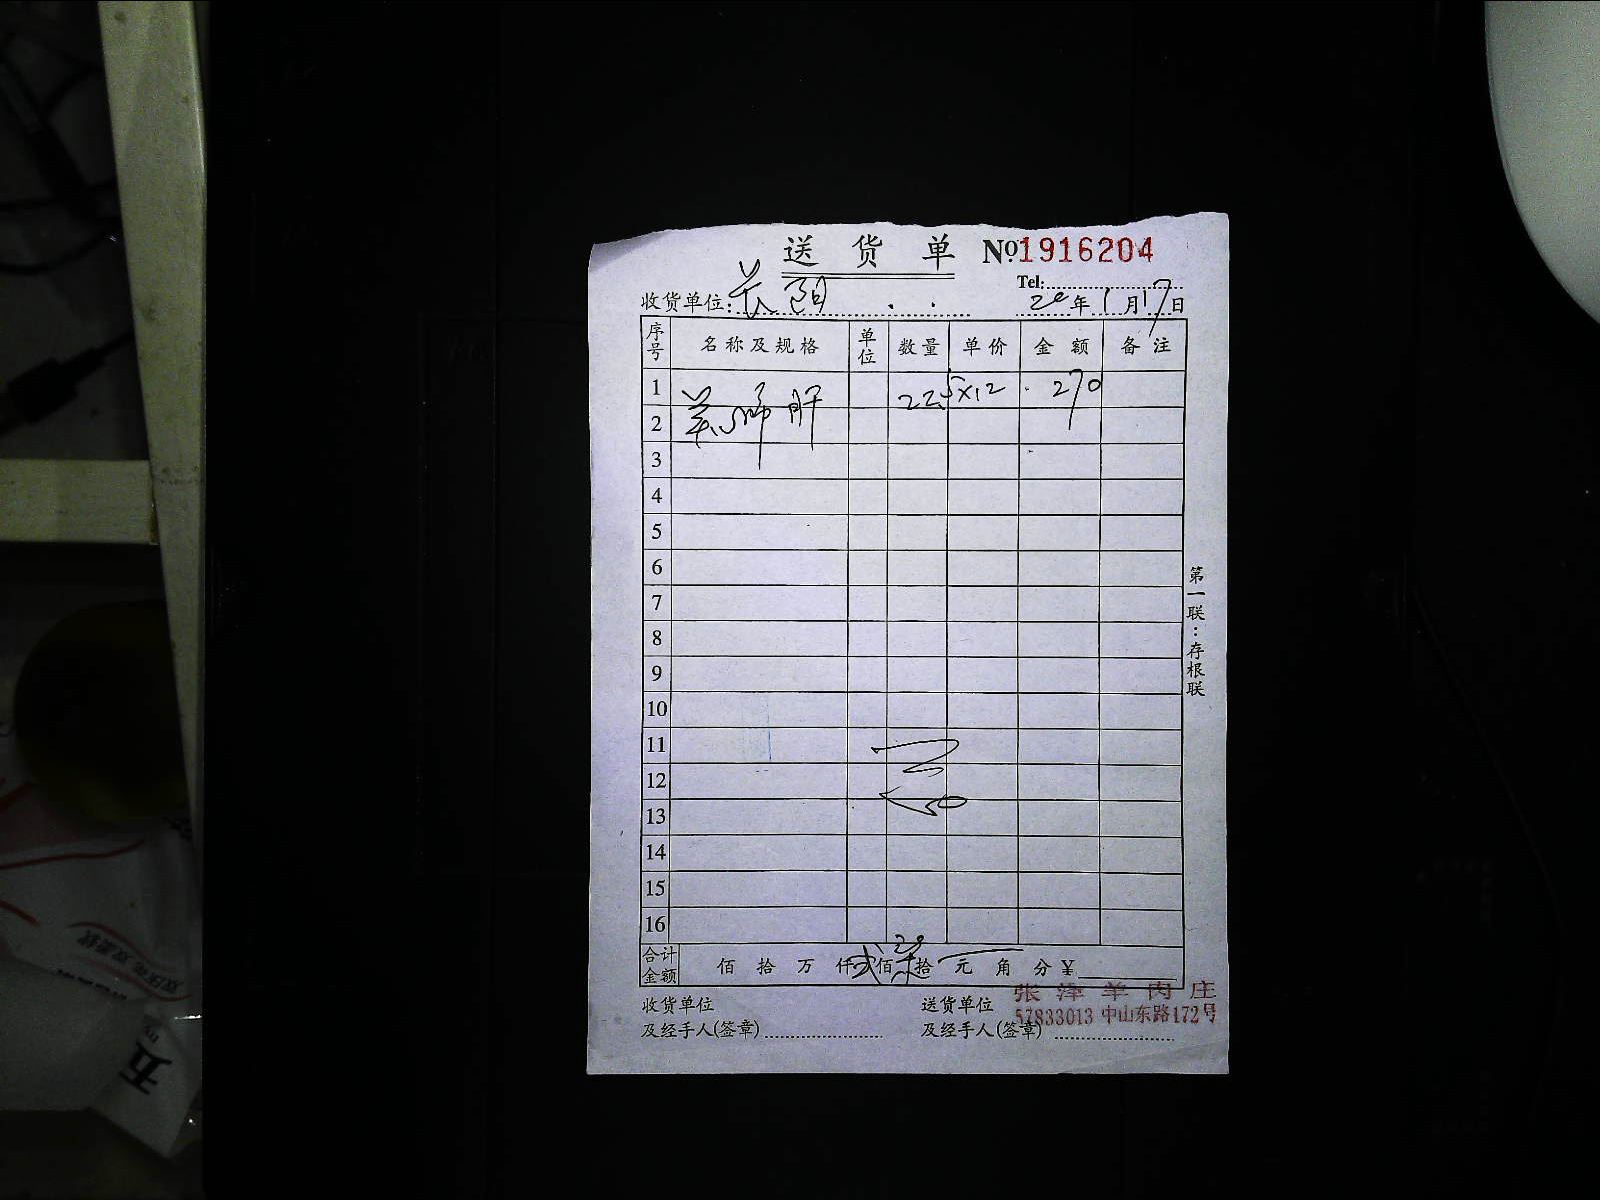 送货单 №1916204
Tel:
收货单位: 长阳 20年1月17日
序号 名称及规格 单位 数量 单价 金额 备注
1 羊心肺肝 22.5×12 270
2
3
4
5
6
7
8
9
10
11
12
13
14
15
16
合计金额 佰 拾 万 仟 贰佰 柒拾 元 角 分 ¥
收货单位 送货单位 张泽羊肉庄
及经手人(签章) 及经手人(签章) 57833013 中山东路172号
第一联:存根联
五